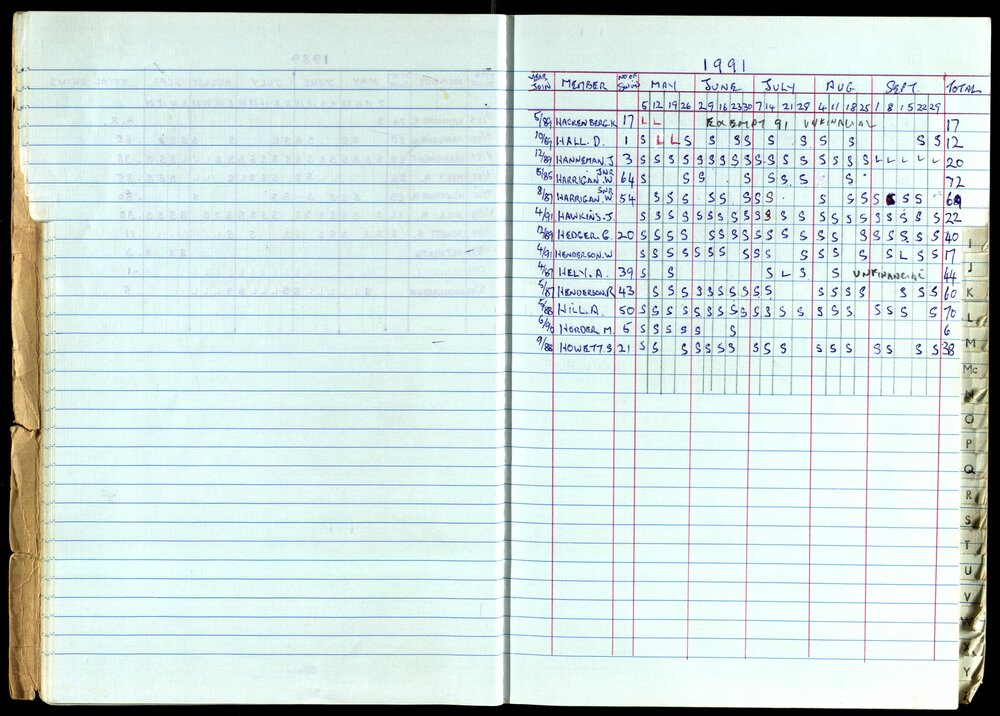 1991
YEAR JOIN MEMBER NO OF SWIM MAY JUNE JULY AUG SEPT. TOTAL
5 12 19 26 2 9 16 23 30 7 14 21 28 4 11 18 25 1 8 15 22 29
5/89 HACKENBERG.K 17 L L EXEMPT 91 UNFINACIAL 17
10/89 HALL. D. 1 S L L S S S S S S S S S S 12
12/89 HANNEMAN J. 3 S S S S S S S S S S S S S S S S S L L L L L 20
5/85 HARRIGAN.W JNR 64 S S S S S S S S S 72
8/87 HARRIGAN.W SNR 54 S S S S S S S S S S S S S S S
4/91 HAWKINS.J S S S S S S S S S S S S S S S S S S S S S S 22
12/89 HEDGER. G. 20 S S S S S S S S S S S S S S S S S S S S 40
4/91 HENDERSON.W S S S S S S S S S S S S S S L S S 17
4/87 HELY. A. 39 S S S L S S UNFINANCIAL 44
5/87 HENDERSON.R 43 S S S S S S S S S S S S S S S 60
5/88 HILL.A. 50 S S S S S S S S S S S S S S S S S S S S S 70
6/90 HORDER M. 5 S S S S S S 6
9/88 HOWETT.S 21 S S S S S S S S S S S S S S S S S 38
I
J
K
L
M
Mc
N
O
P
Q
R
S
T
U
V
W
X
Y